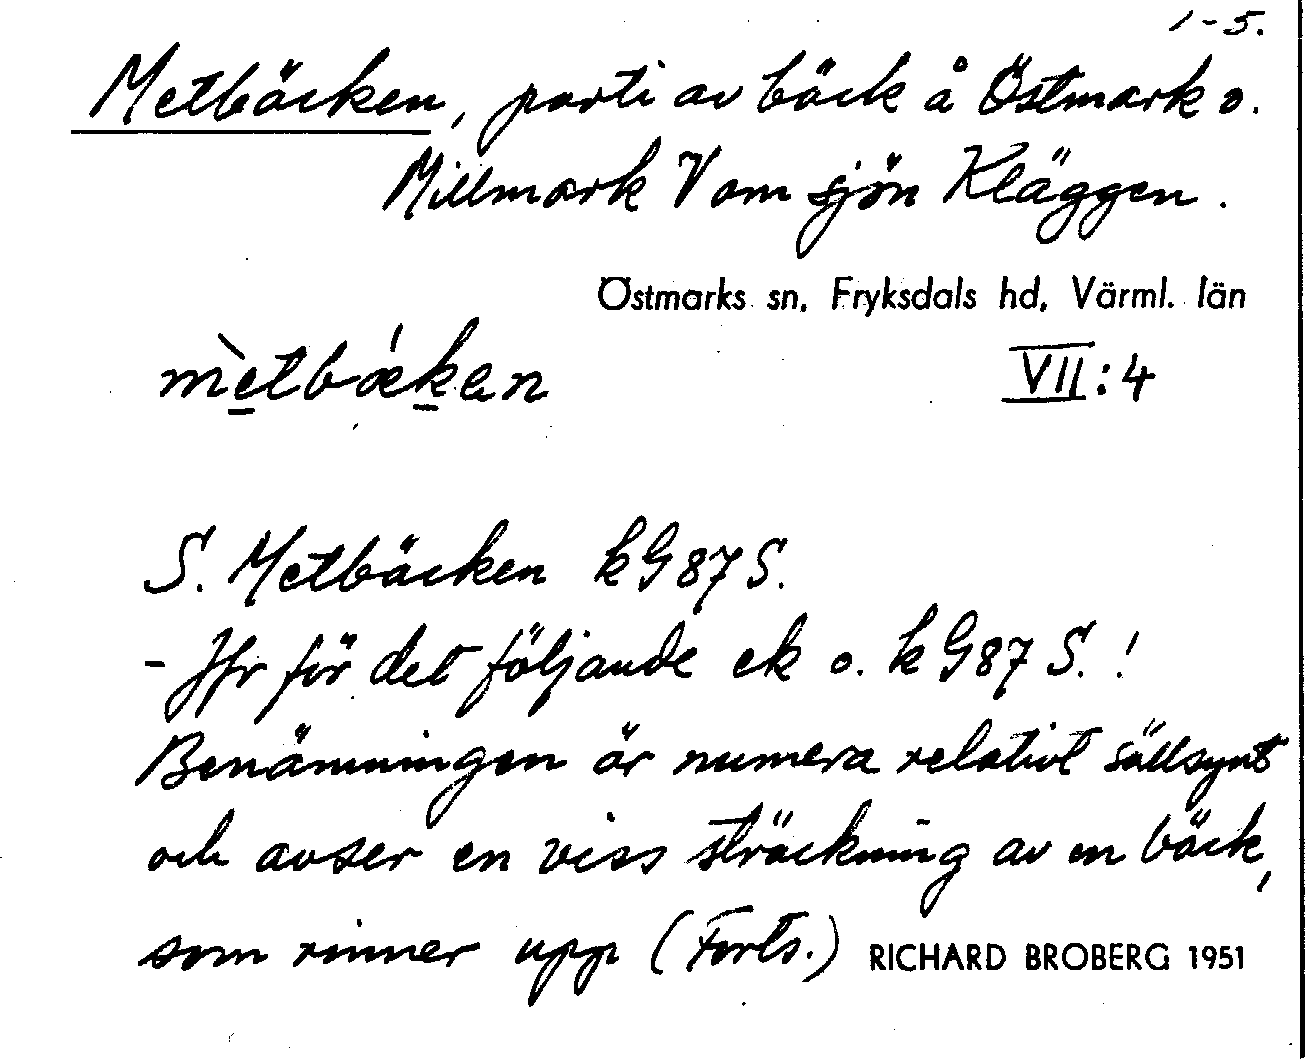 1-5.
Metbäcken, parti av bäck å Östmark o.
Millmark V om sjön Kläggen.
Östmarks sn, Fryksdals hd, Värml. län
mètbǽkan VII:4
S. Metbäcken k G 87 S.
- Jfr för det följande ek o. k G 87 S.!
Benämningen är numera relativt sällsynt
och avser en viss sträckning av en bäck,
som rinner upp (Forts.) RICHARD BROBERG 1951